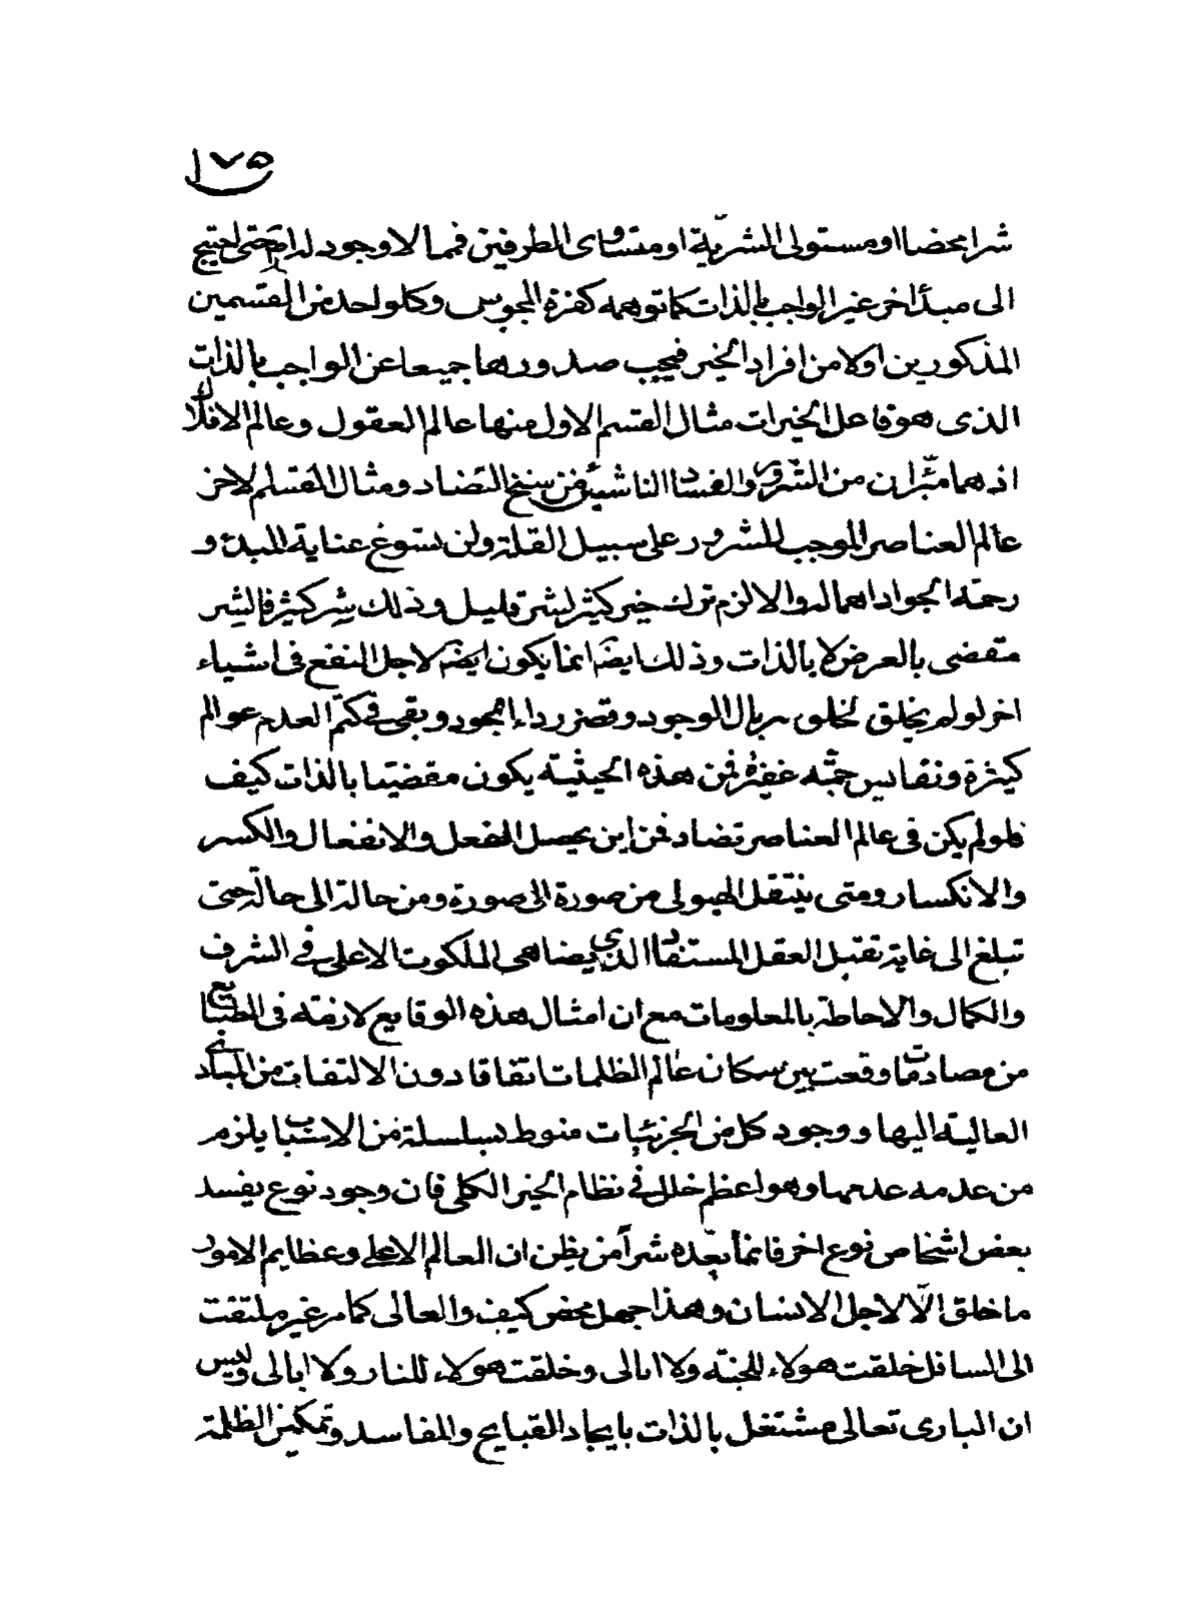 ١٧٥
شرا محضا او مستولى الشرية او متساوى الطرفين فمما لا وجود له اصلا حتى احتيج
الى مبدأ اخر غير الواجب بالذات كما توهمه كفرة المجوس وكل واحد من القسمين
المذكورين اولا من افراد الخير فيجب صدورها جميعا عن الواجب بالذات
الذى هو فاعل الخيرات مثال القسم الاول منها عالم العقول وعالم الافلاك
اذ هما مبّران من الشرور والفساد الناشية من سنخ التضاد ومثال القسم الاخر
عالم العناصر الموجب للشرور على سبيل القلة ولن يسوغ عناية المبدء و
رحمة الجواد اهماله والا لزم ترك خير كثير لشر قليل وذلك شر كثير فالشر
مقضى بالعرض لا بالذات وذلك ايضا انما يكون ايضا لاجل النفع فى اشياء
اخر لو لم يخلق لخلق سربال الوجود وقصر رداء الجود وبقى فى كتم العدم عوالم
كثيرة ونفايس جمّة غفيرة فمن هذه الحيثية يكون مقضيا بالذات كيف
فلو لم يكن فى عالم العناصر تضاد فمن اين يحصل الفعل والانفعال والكسر
والانكسار ومتى ينتقل الهيولى من صورة الى صورة ومن حالة الى حالة حتى
تبلغ الى غاية تقبل العقل المستفاد الذي يضاهى الملكوت الاعلى فى الشرف
والكمال والاحاطة بالمعلومات مع ان امثال هذه الوقايع لازمة فى الطبايع
من مصادمات وقعت بين سكان عالم الظلمات اتفاقا دون الالتفات من المبادى
العالية اليها ووجود كل من الجزئيات منوط بسلسلة من الاسباب يلزم
من عدمه عدمها وهو اعظم خلل فى نظام الخير الكلى فان وجود نوع يفسد
بعض اشخاص نوع اخر فانما يعدّه شراً من يظن ان العالم الاعلى وعظايم الامور
ما خلق الّا لاجل الانسان وهذا جهل محض كيف والعالى كما مر غير ملتفت
الى السافل خلقت هولاء للجنة ولا ابالى وخلقت هولاء للنار ولا ابالى وليس
ان البارى تعالى مشتغل بالذات بايجاد القبايح والمفاسد وتمكين الظلمة